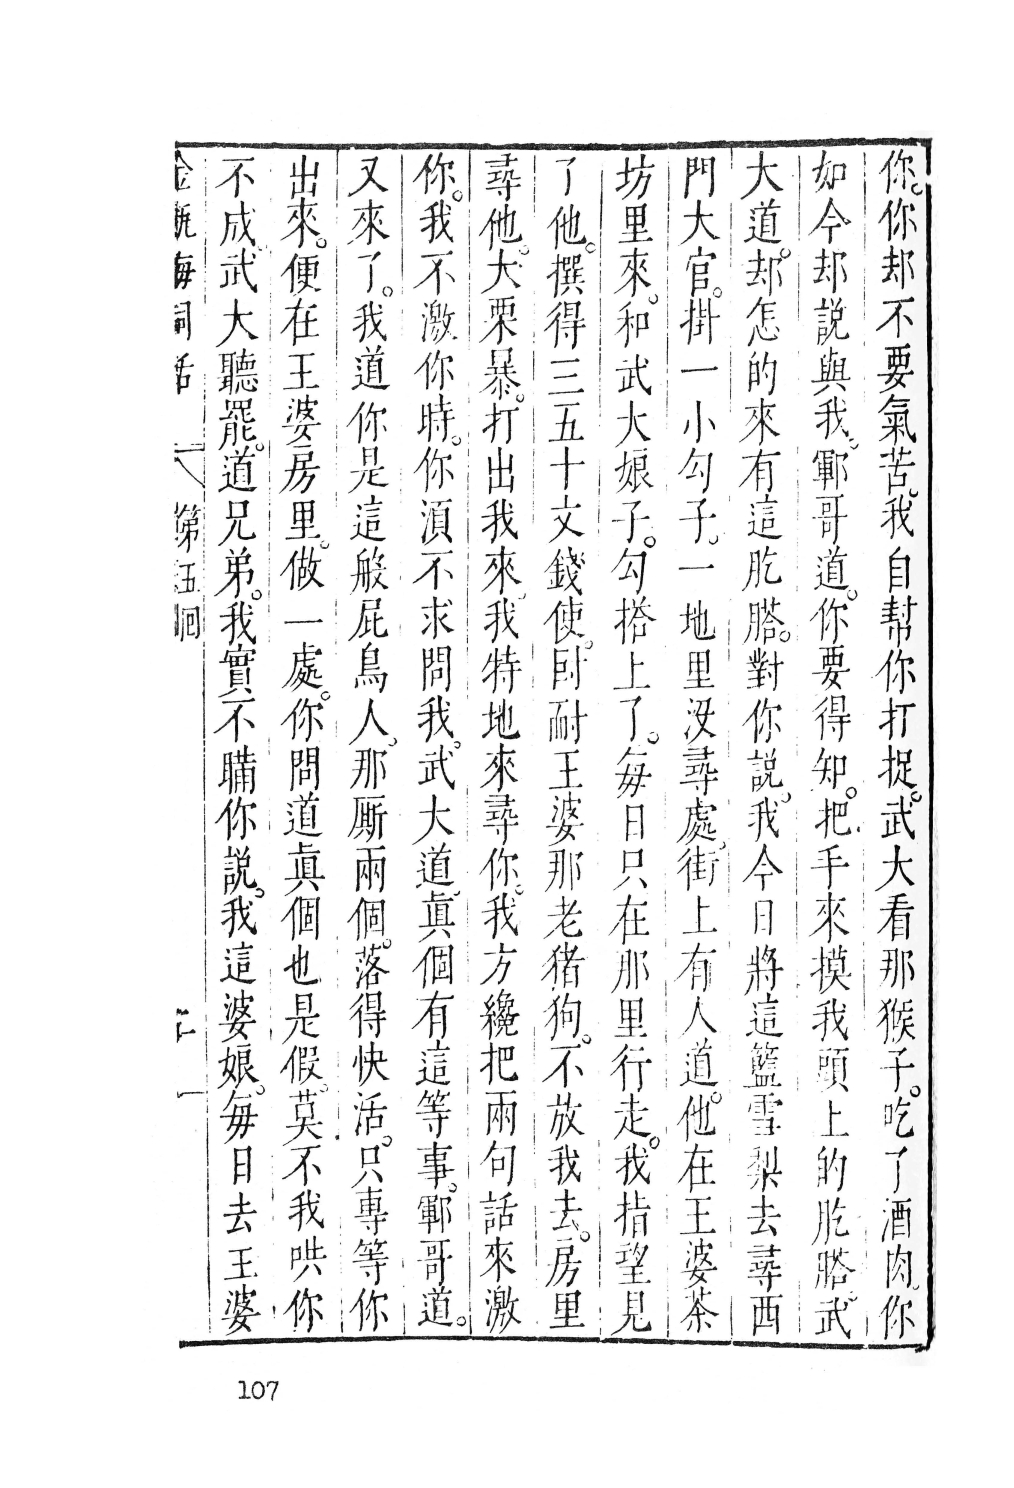 你。你却不要氣苦。我自幫你打捉。武大看那猴子。吃了酒肉。你
如今却説與我。鄆哥道。你要得知。把手來摸我頭上的肐𦢊。武
大道。却怎的來有這肐𦢊。對你説。我今日將這籃雪梨去尋西
門大官。掛一小勾子。一地里没尋處。街上有人道。他在王婆茶
坊里來。和武大娘子。勾搭上了。每日只在那里行走。我指望見
了他。撰得三五十文錢使。叵耐王婆那老猪狗。不放我去。房里
尋他。大栗暴。打出我來。我特地來尋你。我方纔把兩句話來激
你。我不激你時。你須不求問我。武大道。真個有這等事。鄆哥道。
又來了。我道你是這般屁鳥人。那厮兩個。落得快活。只專等你
出來。便在王婆房里。做一處。你問道真個也是假。莫不我哄你
不成。武大聽罷。道兄弟。我實不瞞你説。我這婆娘。每日去王婆
金瓶梅詞話 第五回
107